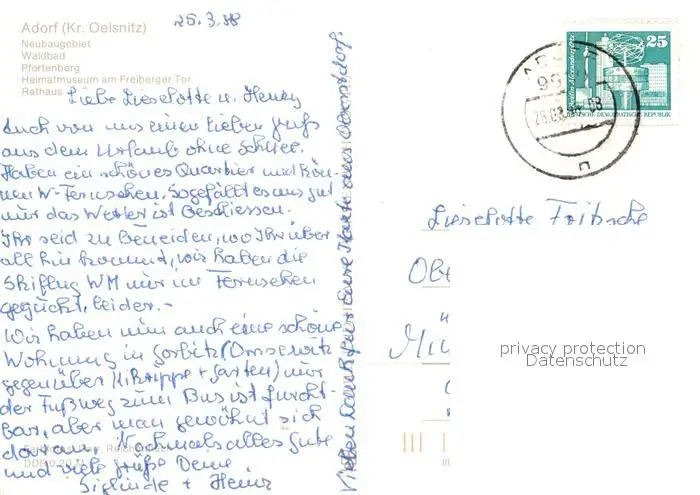 Adorf (Kr. Oelsnitz)
Neubaugebiet
Waldbad
Pfortenberg
Heimatmuseum am Freiberger Tor
Rathaus
25.3.88
Liebe Lieselotte u. Henry
Auch von uns einen lieben Gruß
aus dem Urlaub ohne Schnee.
Haben ein schönes Quartier und kön-
nen W-Fernsehen. Sogefällt es uns gut
nur das Wetter ist Beschiessen.
Ihr seid zu beneiden, wo Ihr über-
all hin kommt, wir haben die
Skiflug WM nur im Fernsehen
geguckt, leider.-
Wir haben nun auch eine schöne
Wohnung in Gorbitz (Omsewitz
gegenüber Krippe + Garten) nur
der Fußweg zum Bus ist furcht-
bar, aber man gewöhnt sich
daran. Nochmals alles Gute
und viele Grüße Deine
Siglinde + Heinz
Vielen Dank für Eure Karte aus Oberstdorf.
DDR
25
Berlin, Alexanderplatz
DEUTSCHE DEMOKRATISCHE REPUBLIK
Lieselotte Fritsche
Obe
privacy protection
Datenschutz